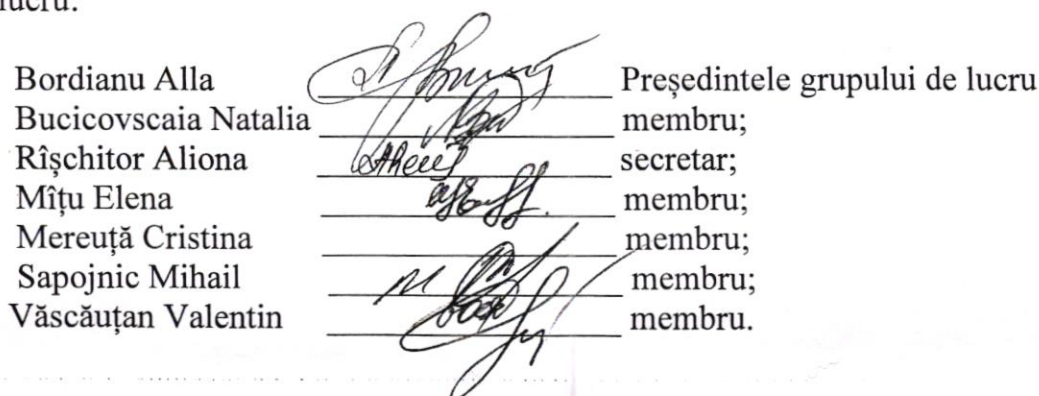 lucru:
Bordianu Alla Președintele grupului de lucru
Bucicovscaia Natalia membru;
Rîșchitor Aliona secretar;
Mîțu Elena membru;
Mereuță Cristina membru;
Sapojnic Mihail membru;
Văscăuțan Valentin membru.